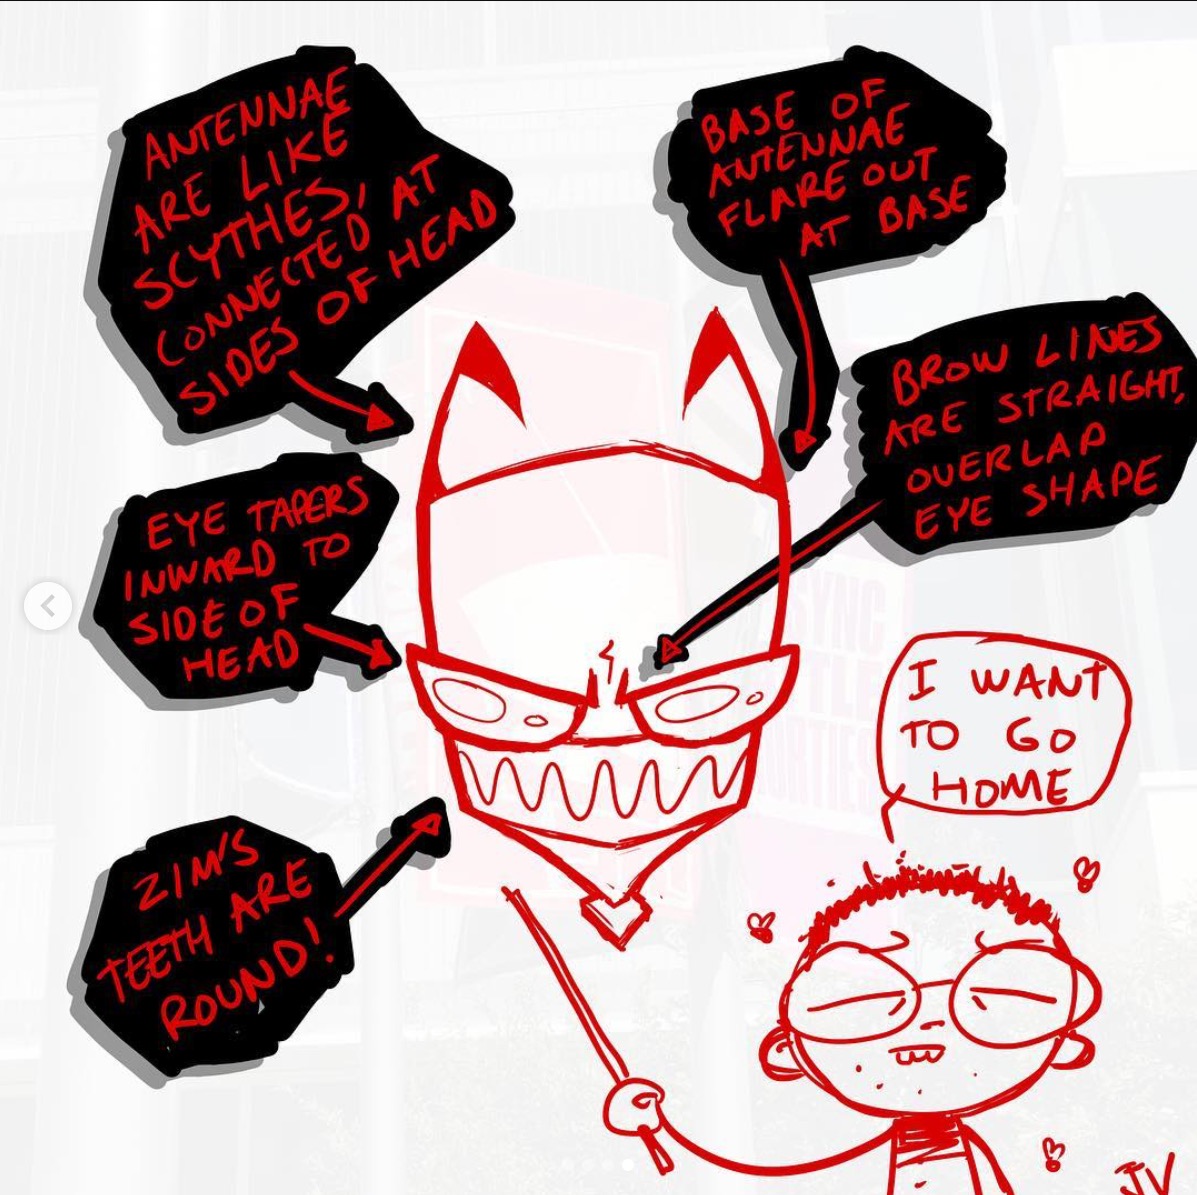 ANTENNAE
ARE LIKE
SCYTHES,
CONNECTED AT
SIDES OF HEAD
BASE OF
ANTENNAE
FLARE OUT
AT BASE
BROW LINES
ARE STRAIGHT,
OVERLAP
EYE SHAPE
EYE TAPERS
INWARD TO
SIDE OF
HEAD
I WANT
TO GO
HOME
ZIM'S
TEETH ARE
ROUND!
JV